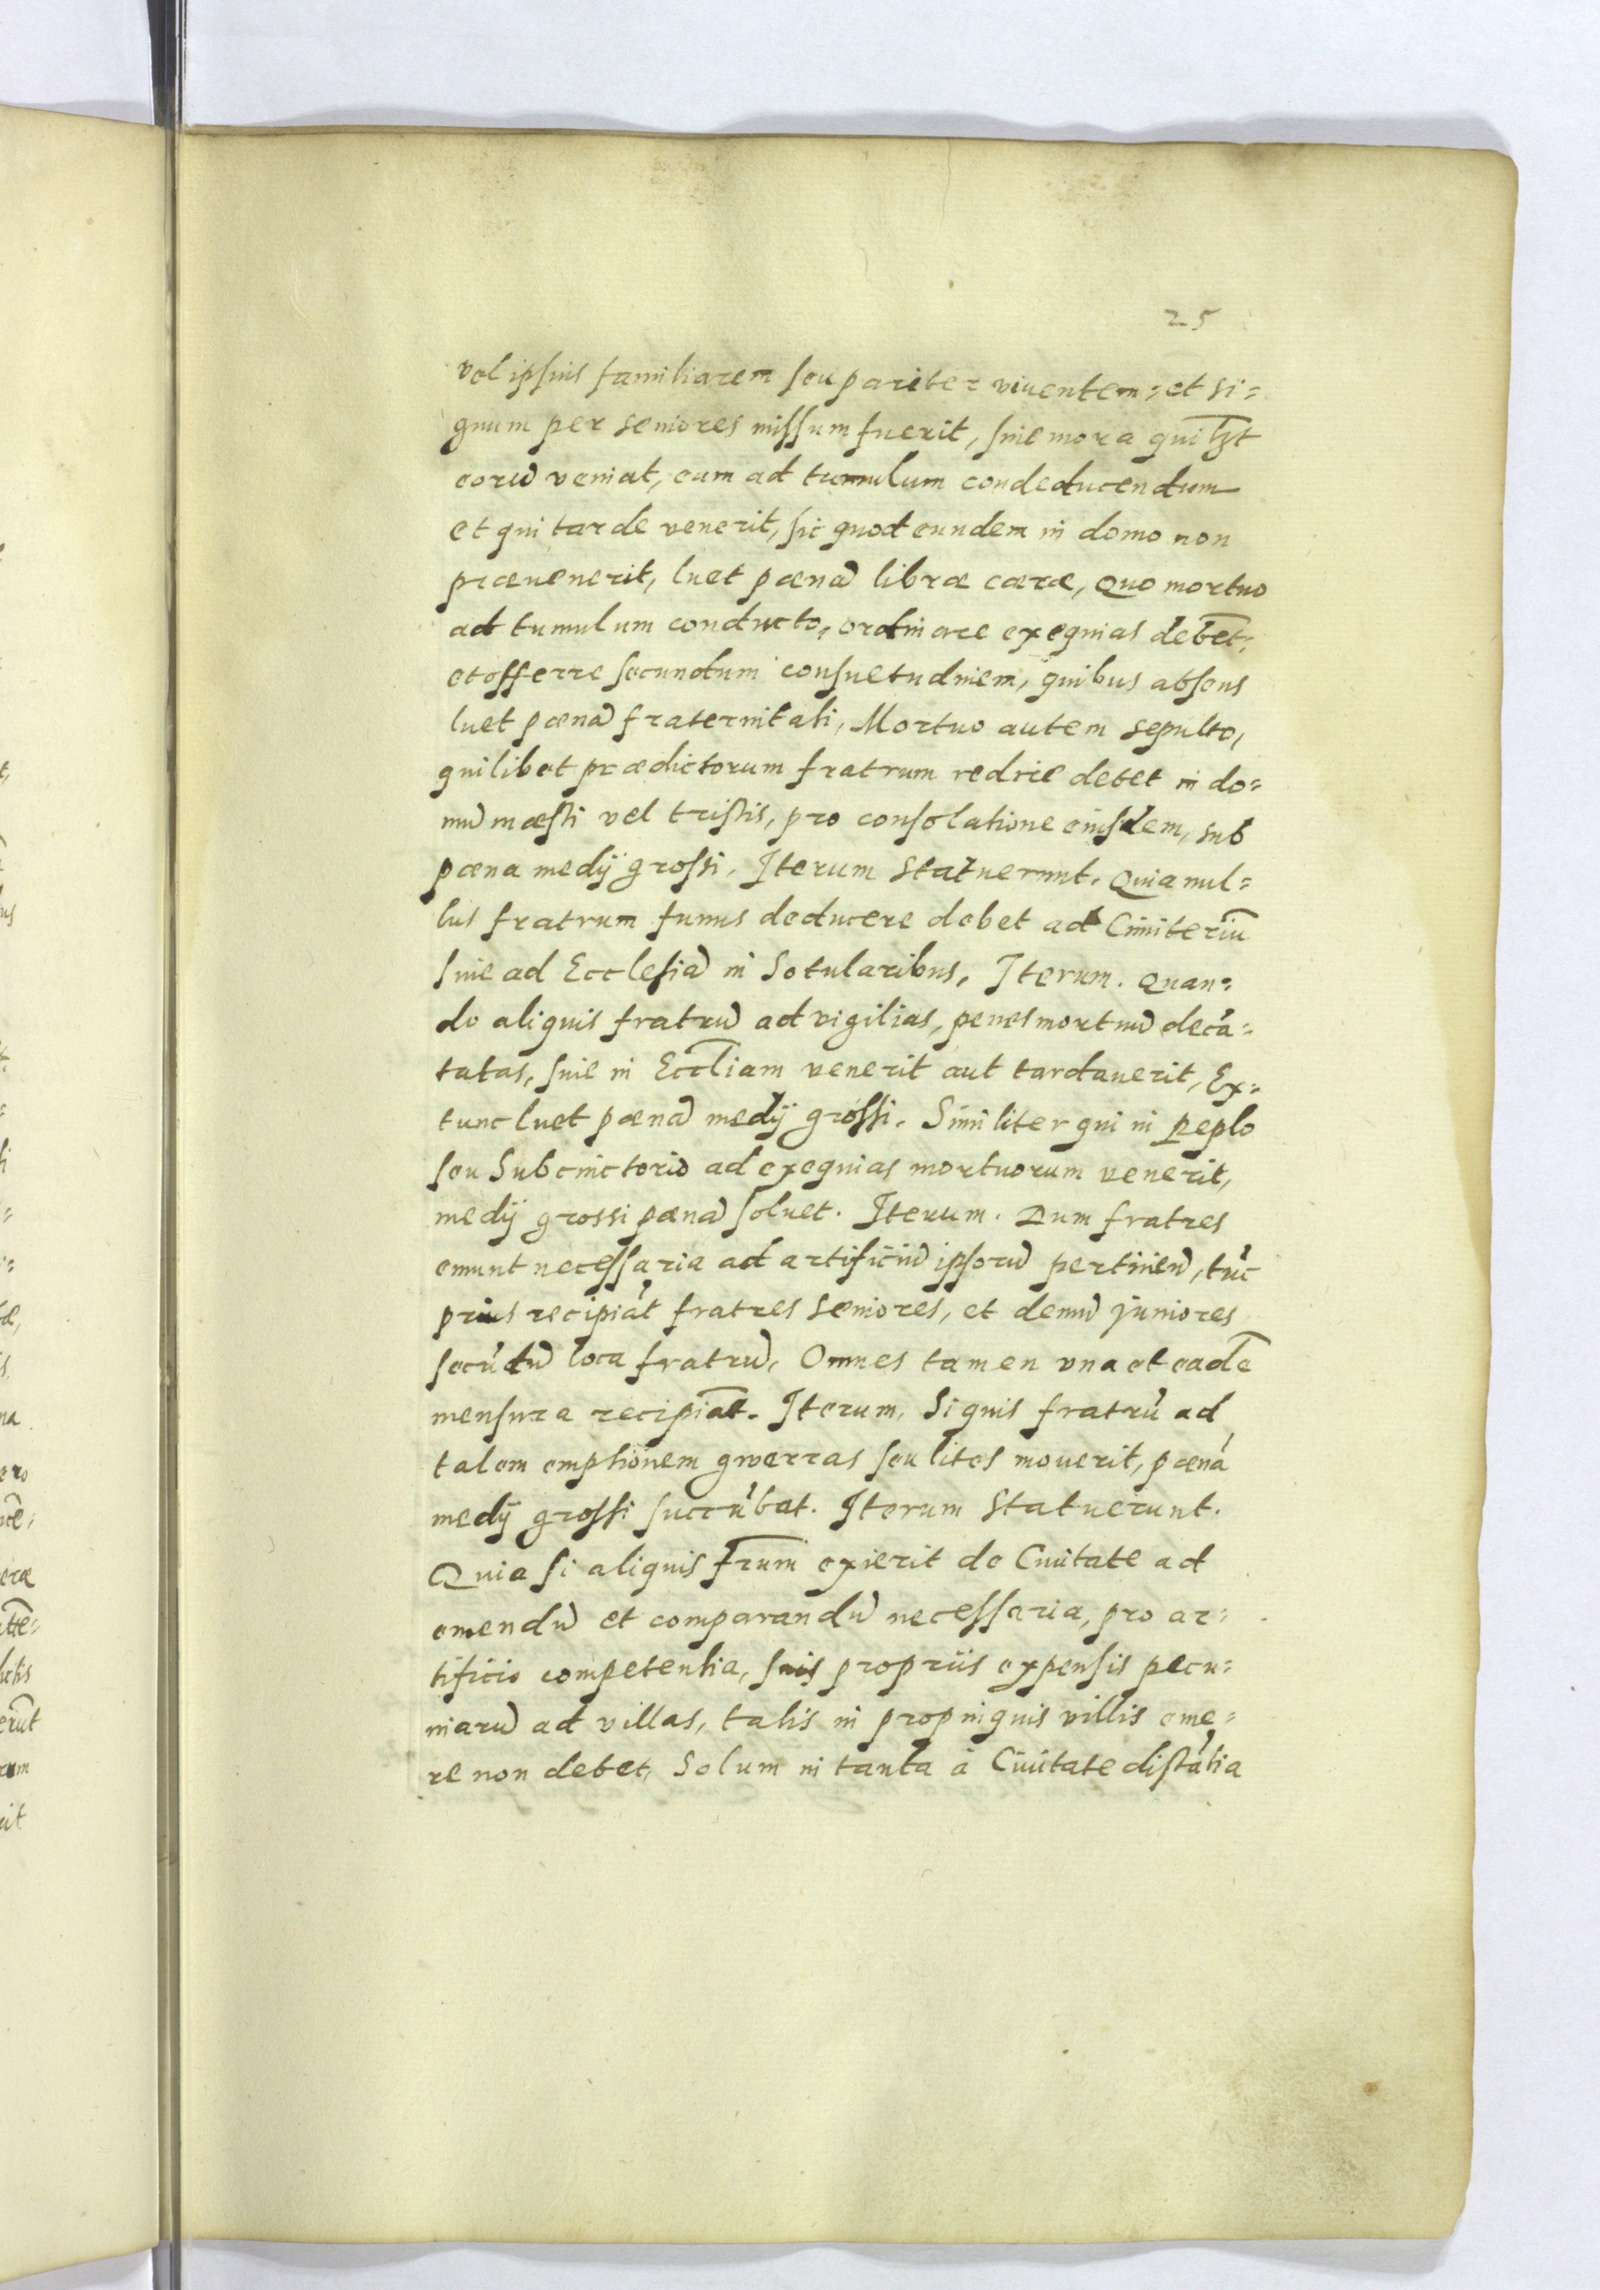 25
vel ipsius familiarem seu pariter viventem: et si=
gnum per seniores missum fuerit, sive mora quilzt
eorũ veniat, eum ad tumulum condeducendum
et qui tarde venerit, sic quod eundem in domo non
prævenerit, luet pœnã libræ cæræ, Quo mortuo
ad tumulum conducto, ordinare exequias debẽt,
et offerre secundum consuetudinem, quibus absens
luet pœnã fraternitati, Mortuo autem sepulto,
quilibet prædictorum fratrum redire debet in do=
mũ mæsti vel tristis, pro consolatione eiusdem, sub
pœna medÿ grossi. Iterum Statuerunt. Quia nul=
lus fratrum funus deducere debet ad Cimiteriũ
sive ad Ecclesiã in Sotularibus, Iterum. Quan=
do aliquis fratrũ ad vigilias, penes mortuũ decã=
tatas, sive in Eccl̃iam venerit aut tardaverit, Ex=
tunc luet pœnã medÿ grossi. Similiter qui in peplo
seu Subcinctorio ad exequias mortuorum venerit,
medÿ grossi pœnã solvet. Iterum. Dum fratres
emunt necessaria ad artificiũ ipsorũ pertineñ, tũc
prius recipiãt fratres Seniores, et demũ juniores
secũdũ loca fratrũ, Omnes tamen una et eadẽ
mensura recipiãt. Iterum, Si quis fratrũ ad
talem emptionem gwerras seu lites moverit, pœnã
medÿ grossi succũbat. Iterum Statuerunt.
Quia si aliquis fr̃um exierit de Civitate ad
emendũ et comparandũ necessaria, pro ar=
tificio competentia, suis propriis expensis pecu=
niarũ ad villas, talis in propinquis villis eme=
re non debet, Solum in tanta à Civitate distãtia